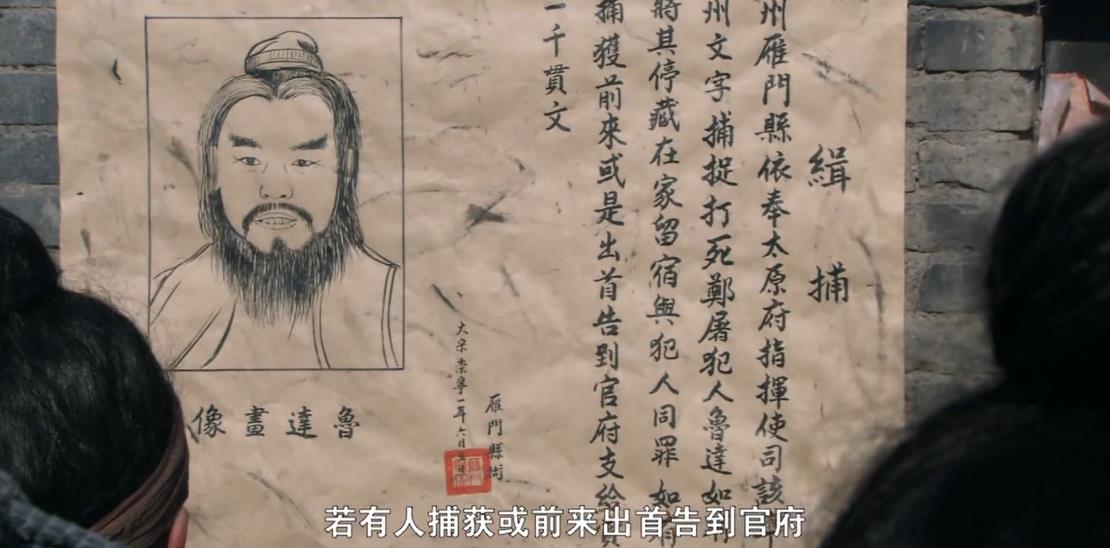 緝捕
州雁門縣依奉太原府指揮使司該
州文字捕捉打死鄭屠犯人魯達如
將其停藏在家留宿與犯人同罪如有
捕獲前來或是出首告到官府支給
一千貫文
雁門縣衙
大宋崇寧一年六月
魯達畫像
若有人捕获或前来出首告到官府